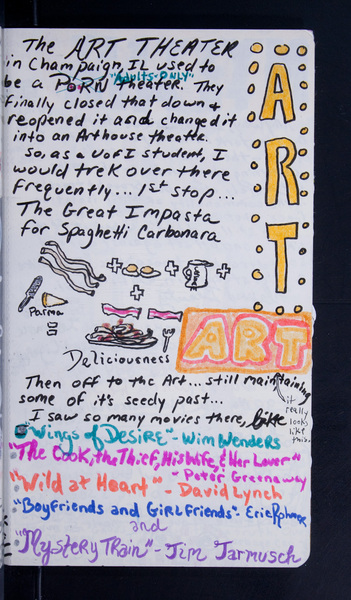 The ART THEATER
in Champaign, IL used to
be a PORN "Adults-ONLY" Theater. They
finally closed that down +
reopened it and changed it
into an Arthouse theater.
So, as a U of I student, I
would trek over there
frequently... 1st stop...
The Great Impasta
for Spaghetti Carbonara
ART
+ + +
Parma
=
Deliciousness
ART
Then off to the Art... still maintaining
some of it's seedy past...
it really looks like this.
I saw so many movies there, like
"Wings of Desire" - Wim Wenders
"The Cook, the Thief, His Wife, & Her Lover"
- Peter Greenaway
"Wild at Heart" - David Lynch
"Boyfriends and Girlfriends" - Eric
and
"Mystery Train" - Jim Jarmusch